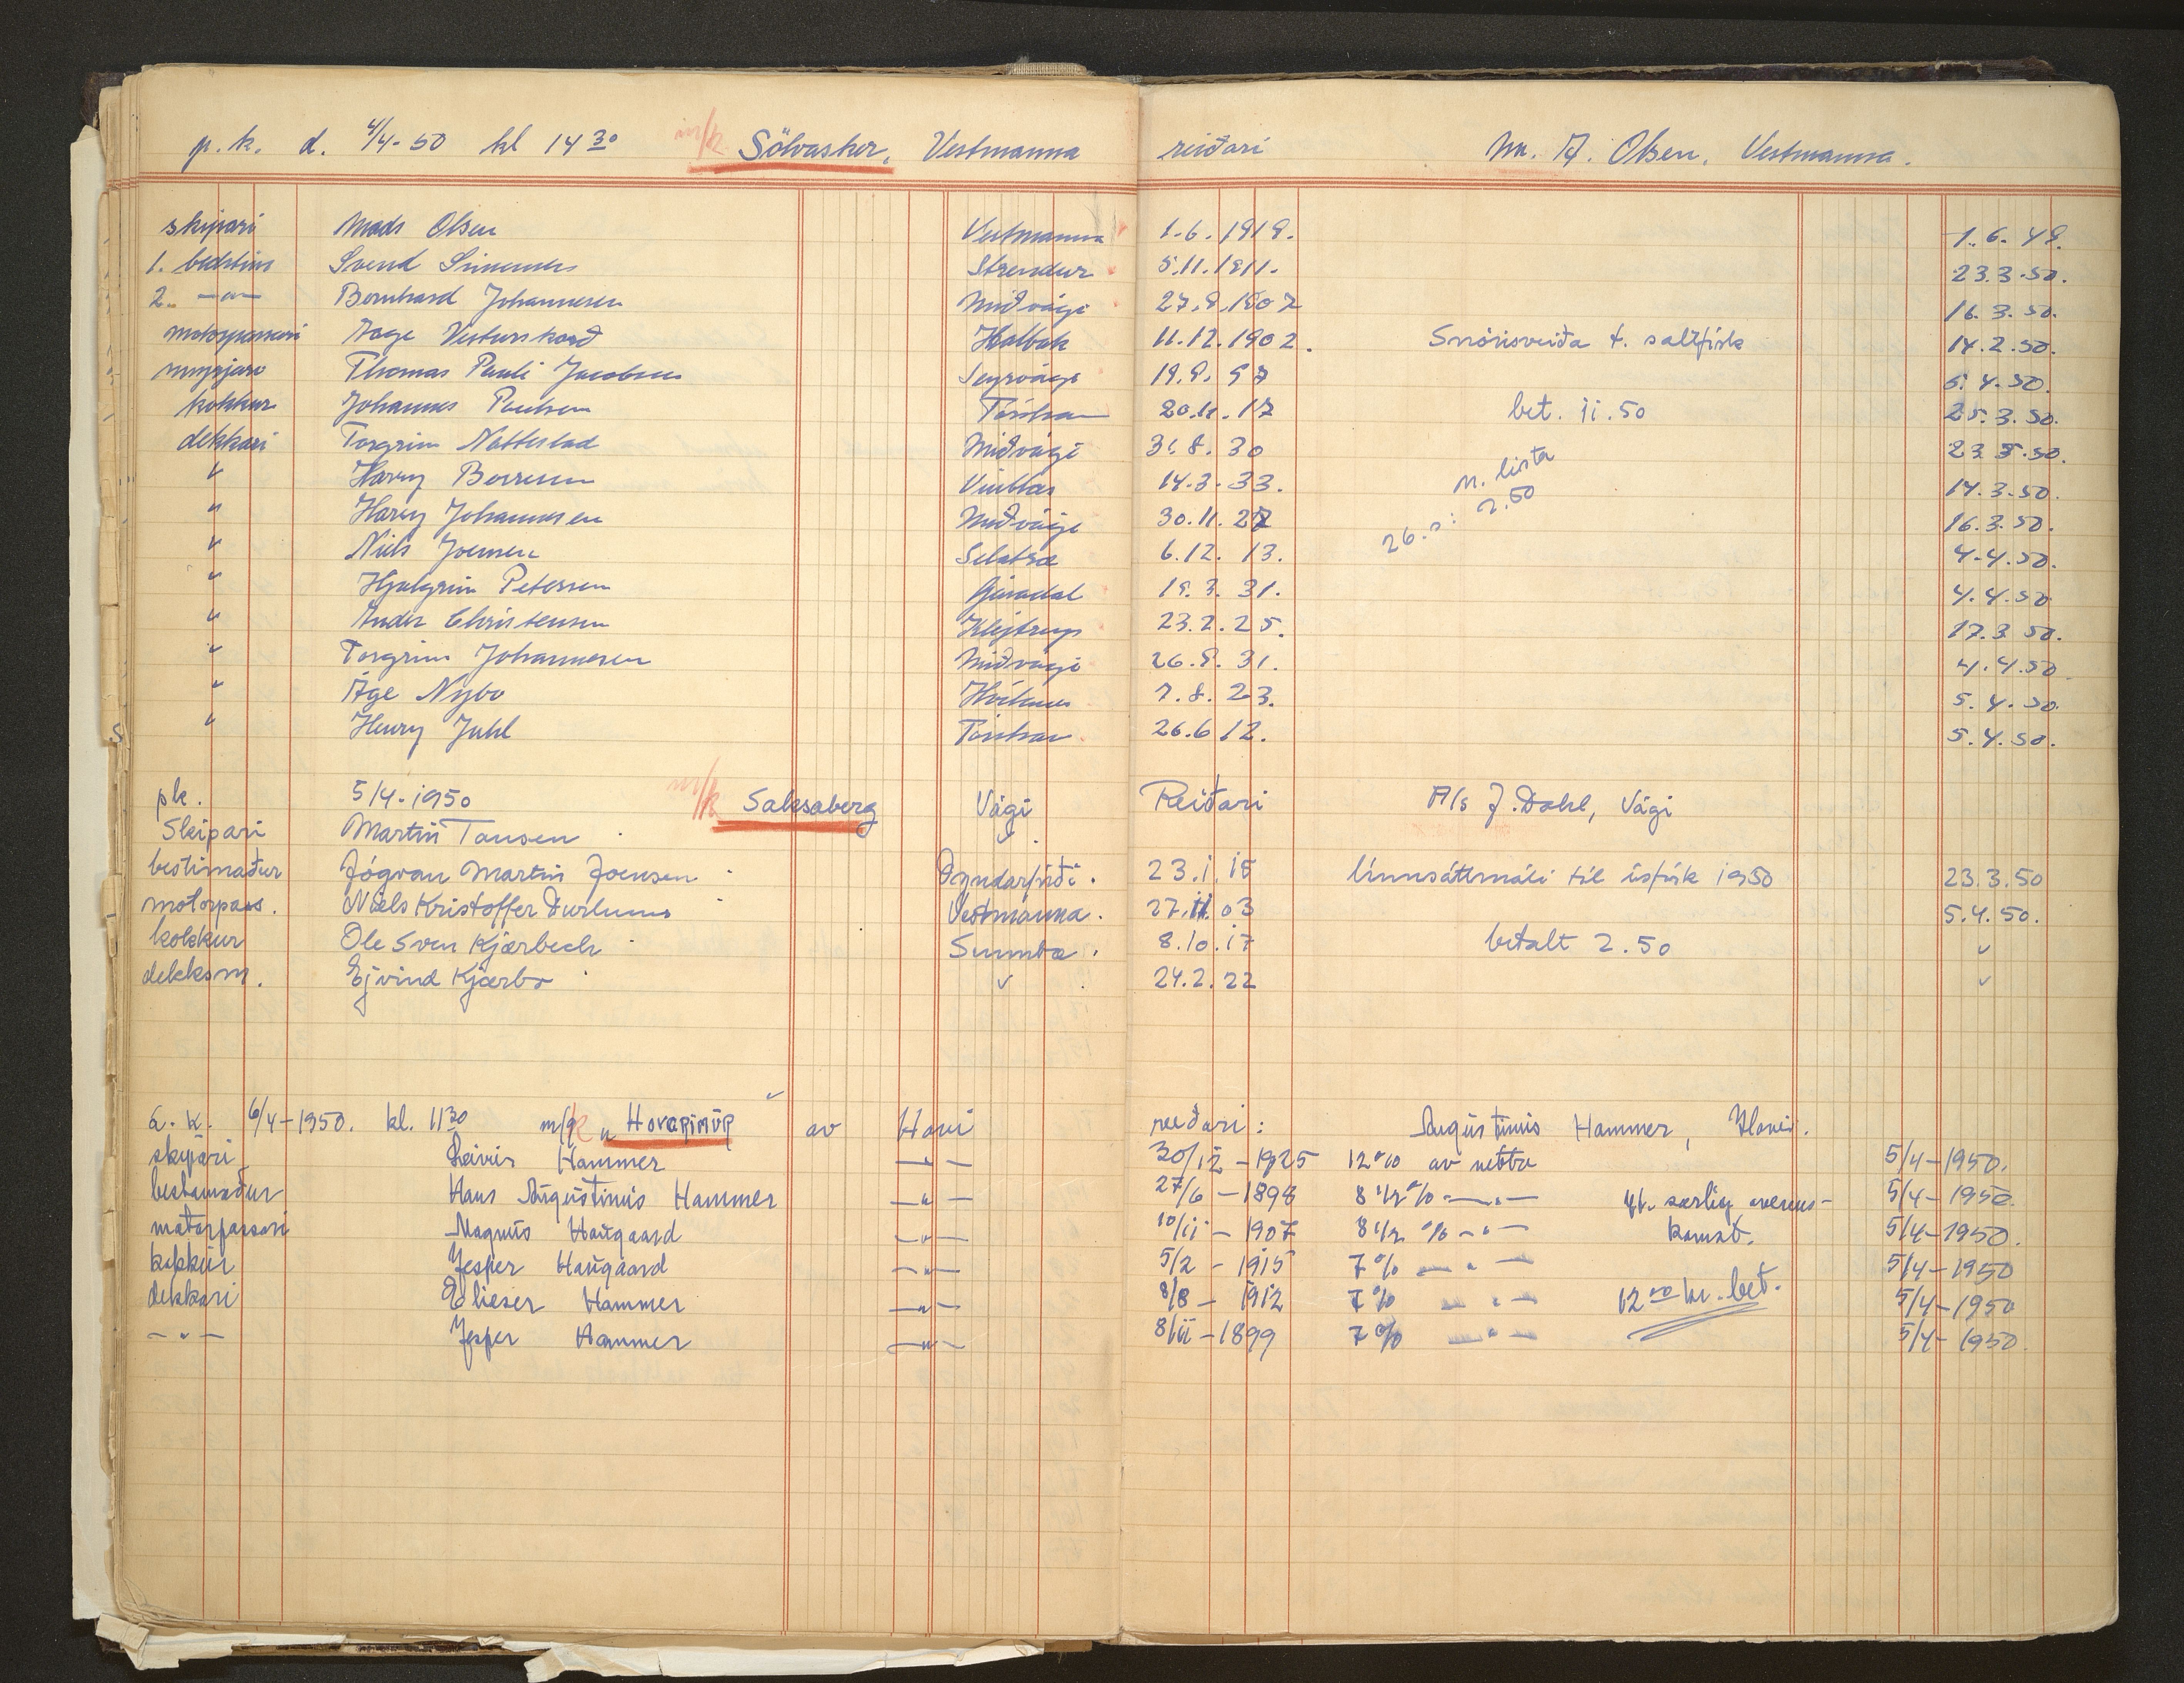 p.k. d. 4/4-50 kl 14 30 m/k Sölvasker, Vestmanna reiðari M. A. Olsen, Vestmanna.
skipari Mads Olsen Vestmanna 1.6.1919. 1.6.49.
1. bedstim Svend Simonsen Strendur 5.11.1911. 23.3.50.
2. -"- Bernhard Johannesen Miðvági 27.9.1907 16.3.50.
motorpassari Aage Vesturskarð Holbæk 11.12.1902. Snörisveiða t. saltfisk 14.2.50.
Thomas Pauli Jacobsen Sørvági 19.9.97 5.4.50.
kokkur Johannes Poulsen Tórshavn 20.11.17 bet. 11.50 25.3.50.
dekkari Torgrim Nattestad Miðvági 31.8.30 23.3.50.
" Harry Berresen 14.3.33. m. lista 2.50 14.3.50.
" Harry Johannesen Miðvági 30.11.27 16.3.50.
" Niels Joensen Selatrað 6.12.13. 4.4.50.
" Hjalgrim Petersen Gásadal 19.3.31. 4.4.50
" Christensen Klejtrup 23.2.25. 17.3.50.
" Torgrim Johannesen Miðvági 26.9.31. 4.4.50
" Åge Nybo Hvídanes 7.8.23. 5.4.50.
" Henry Juhl Tórshav 26.6.12. 5.4.50.
pk. 5/4-1950 m/k Saksaberg Vági Reiðari A/s J. Dahl, Vági
Skipari Martin Tausen "
bestimaður Jógvan Martin Joensen Oyndarfirði. 23.1.15 línusáttmáli til ísfisk 1950 23.3.50
motorpass. Niels Kristoffer Durhuus Vestmanna. 27.11.03 5.4.50.
kokkur Ole Sven Kjærbech Sumba. 8.10.17 betalt 2.50 "
dekksm. Ejvind Kjærbo " 24.2.22 "
a.k. 6/4-1950. kl. 11 30 m/k "Hovarimúr av Hovi reiðari: Augustinus Hammer, Hovi.
skipari Leivur Hammer -"- 30/12-1925 12% av netto 5/4-1950.
bestamaður Hans Augustinus Hammer -"- 27/6-1898 8 1/2% -"- serlig overens- 5/4-1950.
motorpassari Magnus Haugaard -"- 10/11-1907 8 1/2% -"- komst. 5/4-1950.
kokkur Jesper Haugaard -"- 5/2-1915 7% -"- 5/4-1950
dekkari Elieser Hammer -"- 8/8-1912 7% -"- 12 00 kr. bet. 5/4-1950
-"- Jesper Hammer -"- 8/11-1899 7% -"- 5/4-1950.